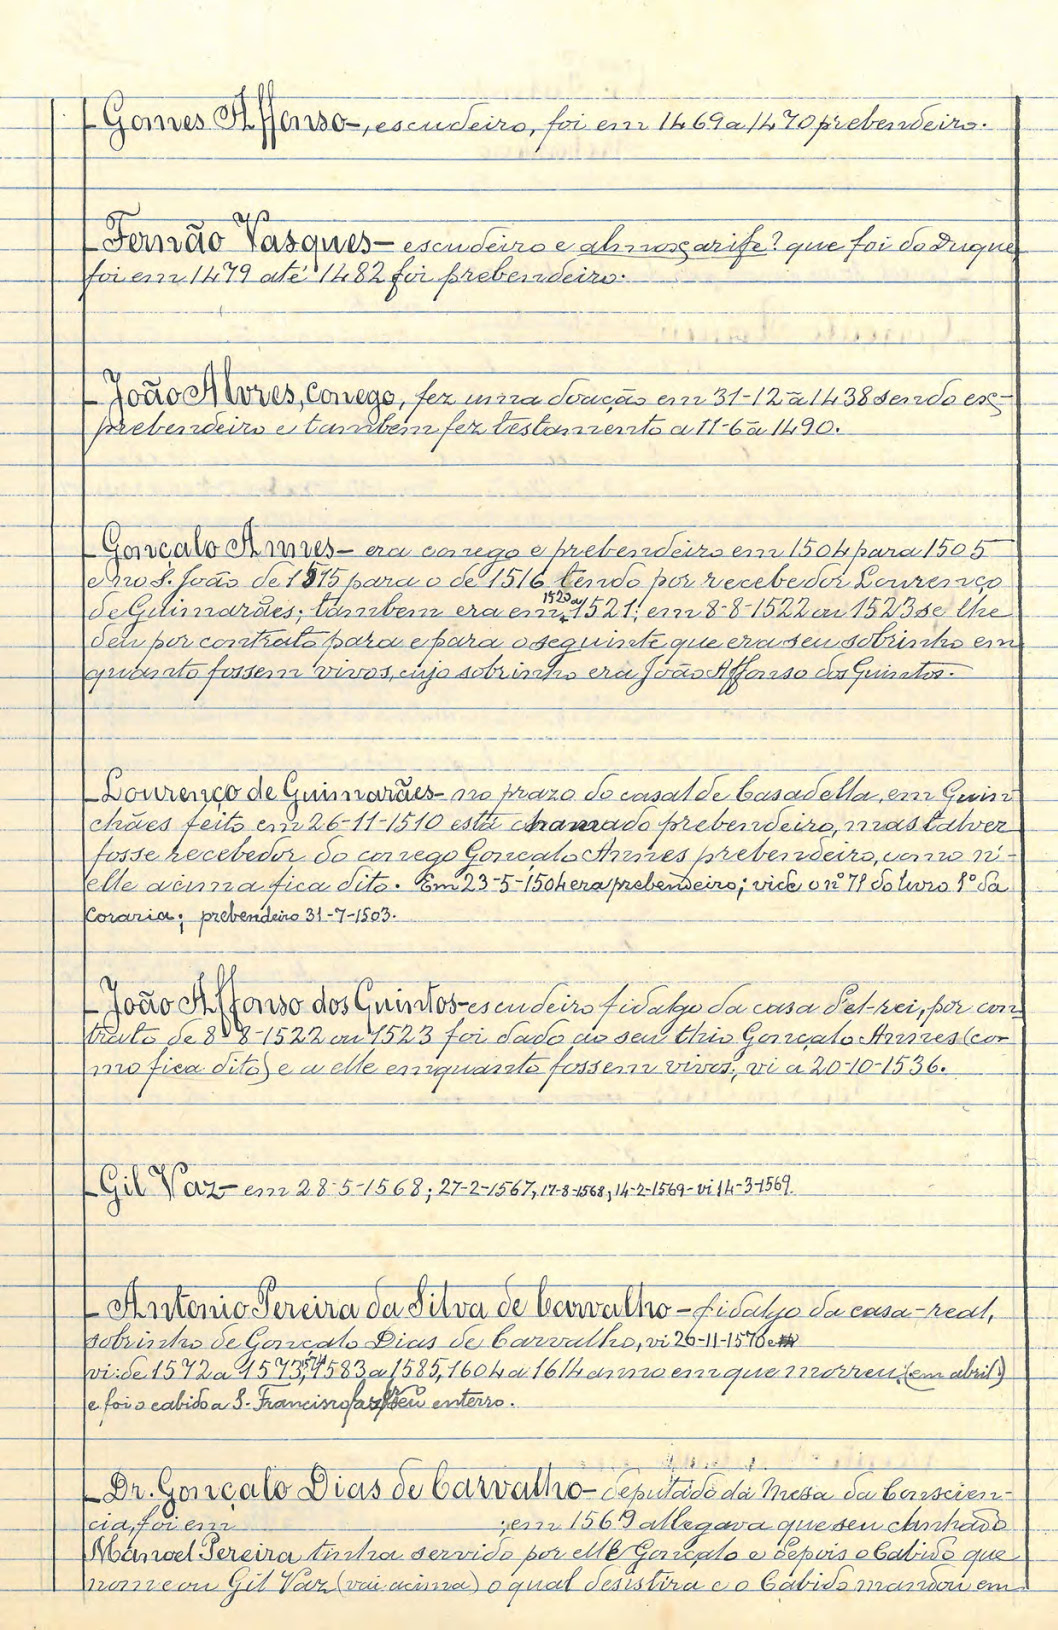 Gomes Affonso-, escudeiro, foi em 1469 a 1470 prebendeiro.
Fernão Vasques- escudeiro e almoxarife? que foi do Duque
foi em 1479 até 1482 foi prebendeiro.
João Alvres, conego, fez uma doação em 31-12-a 1438 sendo ex-
prebendeiro e tambem fez testamento a 11-6-a 1490.
Gonçalo Annes- era conego e prebendeiro em 1504 para 1505
e no S. João de 1515 para o de 1516 tendo por recebedor Lourenço
de Guimarães; tambem era em 1520 a 1521; em 8-8-1522 ou 1523 se lhe
deu por contrato para e para o seguinte que era seu sobrinho em
quanto fossem vivos, cujo sobrinho era João Affonso dos Guintos.
Lourenço de Guimarães- no prazo do casal de Casadella, em Guin
chães feito em 26-11-1510 está chamado prebendeiro, mas talvez
fosse recebedor do conego Gonçalo Annes prebendeiro, como n'-
elle acima fica dito. Em 23-5-1504 era prebendeiro; vide o nº 71 do livro 1º da
Coraria; prebendeiro 31-7-1503.
João Affonso dos Guintos- escudeiro fidalgo da casa d'el-rei, por con-
trato de 8-8-1522 ou 1523 foi dado ao seu thio Gonçalo Annes (co-
mo fica dito) e a elle emquanto fossem vivos; vi a 20-10-1536.
Gil Vaz- em 28-5-1568; 27-2-1567, 17-8-1568; 14-2-1569- vi 14-3-1569.
Antonio Pereira da Silva de Carvalho- fidalgo da casa-real,
sobrinho de Gonçalo Dias de Carvalho, vi 26-11-1570 e
vi: de 1572 a 1573, 1583 a 1585, 1604 a 1614 anno em que morreu (em abril)
e foi o cabido a S. Francisco fazer seu enterro.
Dr. Gonçalo Dias de Carvalho- deputado da Mesa da Conscien-
cia, foi em ; em 1569 allegava que seu cunhado
Manoel Pereira tinha servido por elle Gonçalo e depois o Cabido que
nomeou Gil Vaz (vai acima) o qual desistira e o Cabido mandou em